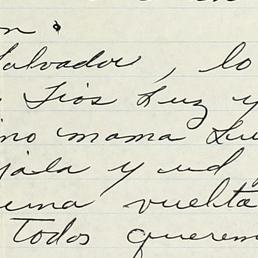 Salvador, lo
Tios Luz y
mama Lu
jala y ud
una vuelta
Todos querem